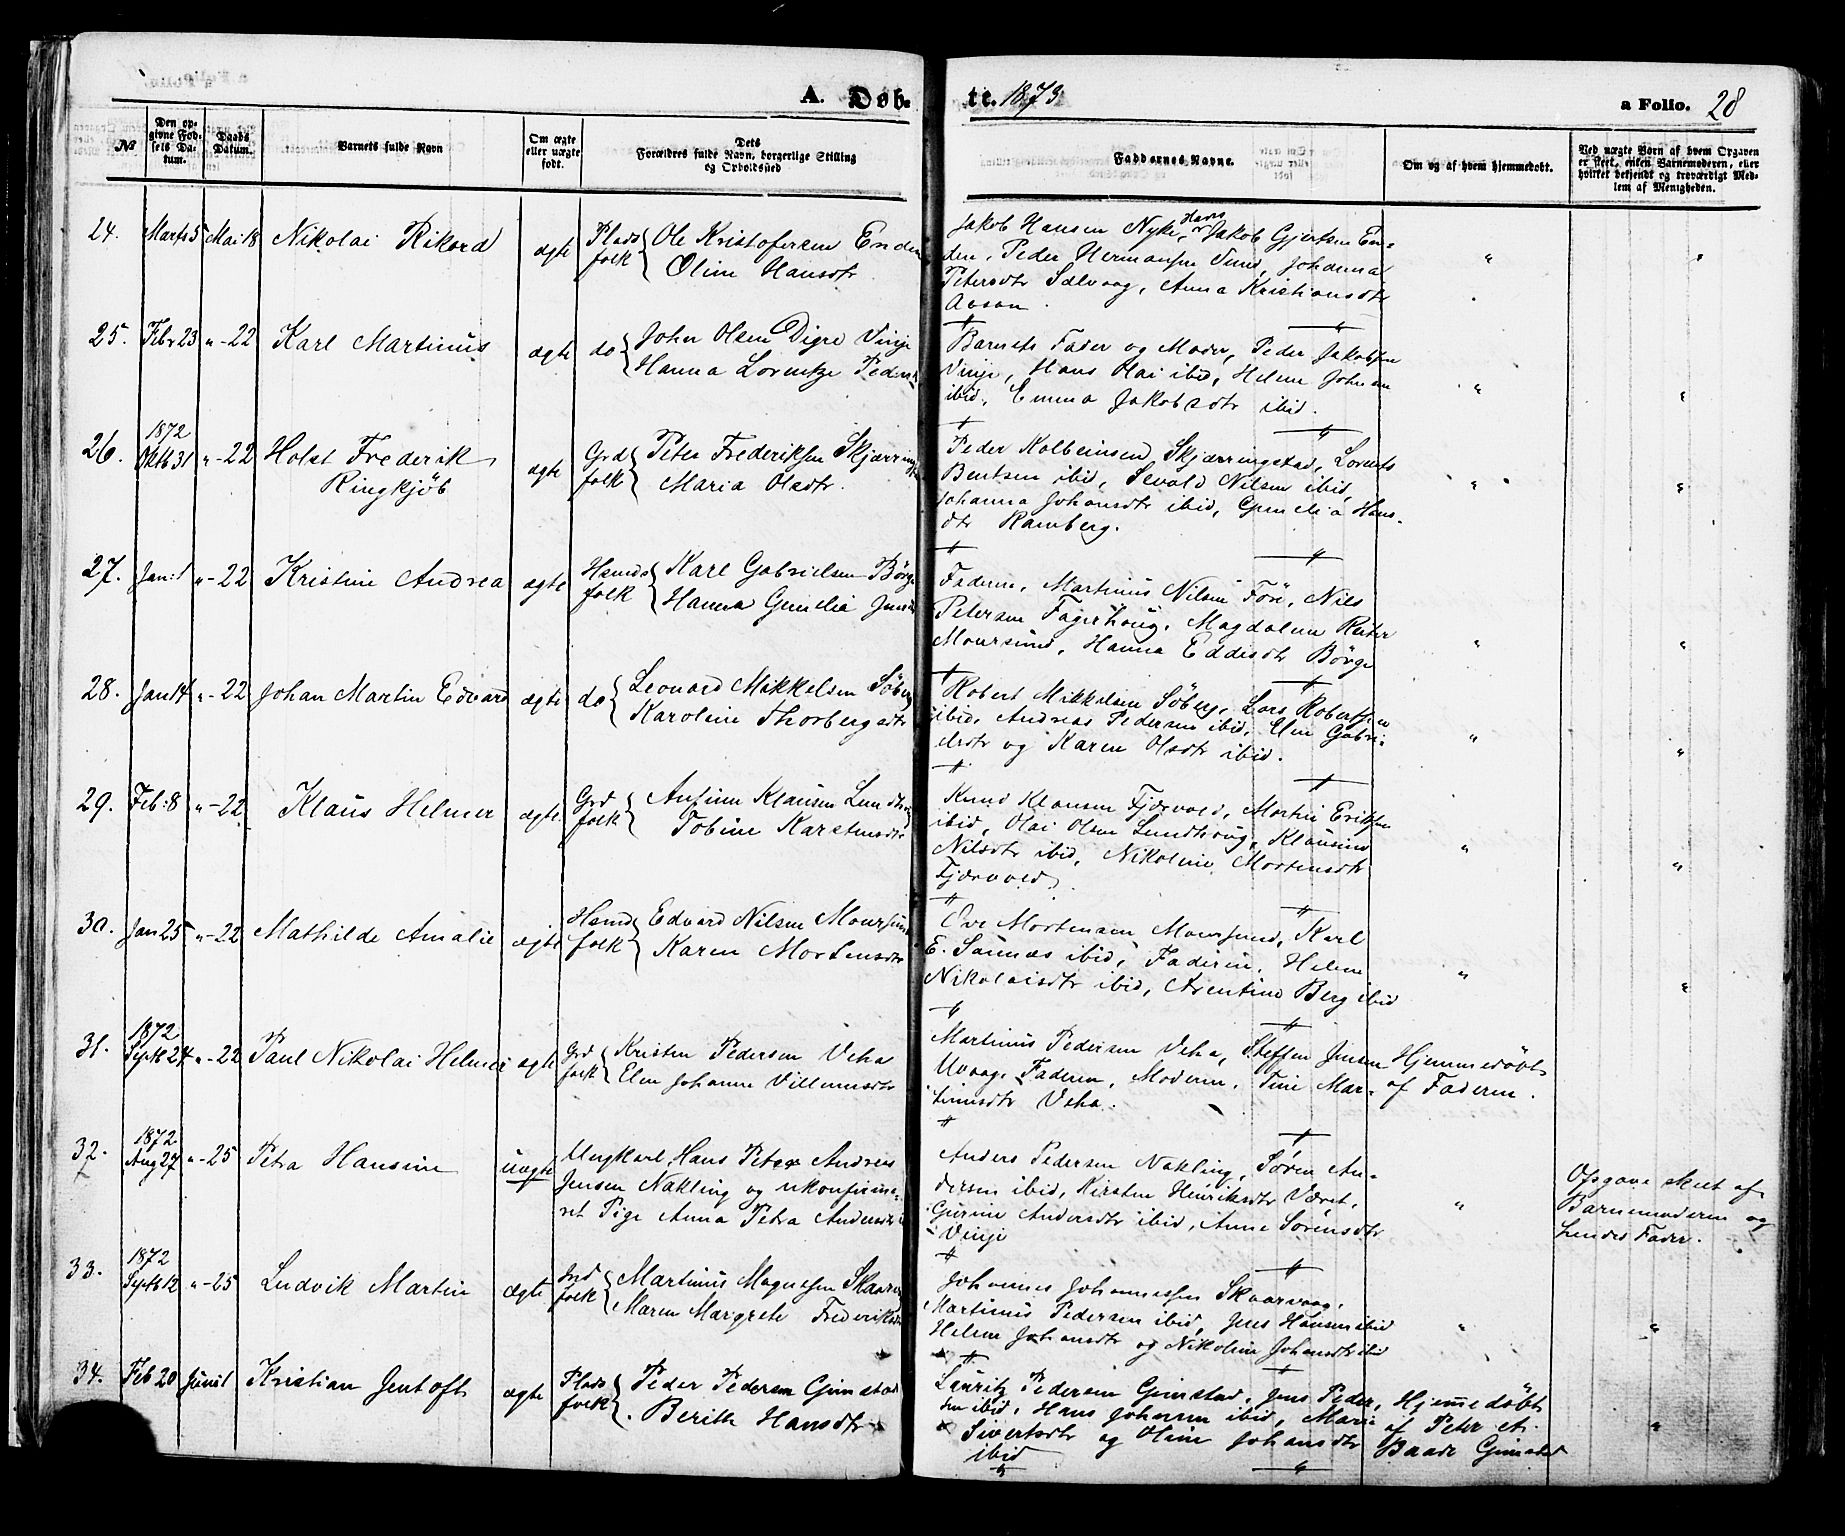 A. Døb-
te. 1873
a Folio. 28
№
Den op-
givne Fød-
sels Da-
tum.
Daabs
Datum.
Barnets fulde Navn
Om ægte
eller uægte
født.
Dets
Forældres fulde Navn, borgerlige Stilling
og Opholdssted
Faddernes Navne.
Om og af hvem hjemmedøbt.
Ved uægte Børn af hvem Opgaven
er skeet, enten Barnemoderen, eller
hvilket bekjendt og troværdigt Med-
lem af Menigheden.
24. Marts 5 Mai 18 Nikolai Rikard ægte Plads
folk Ole Kristofersen Enden
Oline Hansdtr.
Jakob Hansen Nyke, Jakob Gjertsen En-
den, Peder Hermansen Sund, Johanna
Petersdtr Sælvaag, Anna Kristiansdtr
Aasan.
25. Febr 23 " - 22 Karl Martinus ægte do John Olsen Digre Vinje
Hanna Lorentze Peders
Barnets Fader og Moder, Peder Jakobsen
Vinje, Hans Olai ibid, Helene Johnsen
ibid, Emma Jakobsdtr ibid.
26. 1872
Oktb 31 " - 22 Holst Frederik
Ringkjöb ægte Grd
folk Peter Frederiksen Skjærring
Maria Olsdtr.
Peder Kolbeinsen Skjærringstad, Lorents
Bentsen ibid, Sevald Nilsen ibid,
Johanna Johansdtr ibid, Gunelia Hans-
dtr Ramberg.
27. Jan: 1 " - 22 Kristine Andrea ægte Hsmds
folk Karl Gabrielsen Börge
Hanna Gunelia Jens
Faderen, Martinus Nilsen Före, Nils
Petersen Fagerhoug, Magdalena Reuter
Moursund, Hanna Eddisdtr Börge
28. Jan 14 " - 22 Johan Martin Edvard ægte do Leonard Mikkelsen Söberg
Karoline Thorbergsdtr
Robert Mikkelsen Söberg, Lars Robertsen
ibid, Andreas Pedersen ibid, Elen Gabri-
elsdtr og Karen Olsdtr ibid.
29. Feb: 8 " - 22 Klaus Helmer ægte Grd
folk Antinn Klausen Lundhoug
Tobine Karstensdtr
Knud Klausen Fjærvold, Martin Eriksen
ibid, Olai Olsen Lundhoug, Klausine
Nilsdtr ibid, Nikoline Mortensdtr
Fjærvold.
30. Jan 25 " - 22 Mathilde Amalie ægte Hsmd
folk Edvard Nilsen Moursund
Karen Mortensdtr
Ove Mortensen Moursund, Karl
E. Saunæs ibid, Faderen, Helene
Nikolaisdtr ibid, Arentine Berg ibid
31. 1872
Septb 24 " - 22 Paul Nikolai Helmer ægte Grd
folk Kristen Pedersen Veha
Elen Johanna Villumsdtr
Martinus Pedersen Veha, Steffen Jensen
Uvaag, Faderen, Moderen, Tine Mar-
tinusdtr Veha.
Hjemmedöbt
af Faderen.
32. 1872
Aug 27 " - 25 Petra Hansine uægte Ungkarl Hans Peter Andreas
Jensen Nakling og ukonfirme-
ret Pige Anna Petra Andersdtr
Anders Pedersen Nakling, Sören An-
dersen ibid, Kirsten Henriksdtr Været,
Gurine Andersdtr ibid, Anne Sörensdtr
Vinje
Opgave skeet af
Barnemoderen og
hendes Fader.
33. 1872
Septb 12 " - 25 Ludvik Martin ægte Ind
folk Martinus Magnussen Skaarv
Maren Margrete Frederiks
Johannes Johannessen Skaarvaag,
Martinus Pedersen ibid, Jens Hansen ibid
Helene Johansdtr og Nikoline Johansdtr ibid
34. Feb 20 Juni 1 Kristian Jentoft ægte Plads
folk Peder Pedersen Gimstad
Berith Hansdtr
Lauritz Pedersen Gimstad, Jens Peder-
sen ibid, Hans Johansen ibid, Marie
Sivertsdtr og Oline Johansdtr
ibid
Hjemmedöbt
af Peter A.
Baade Gimstad